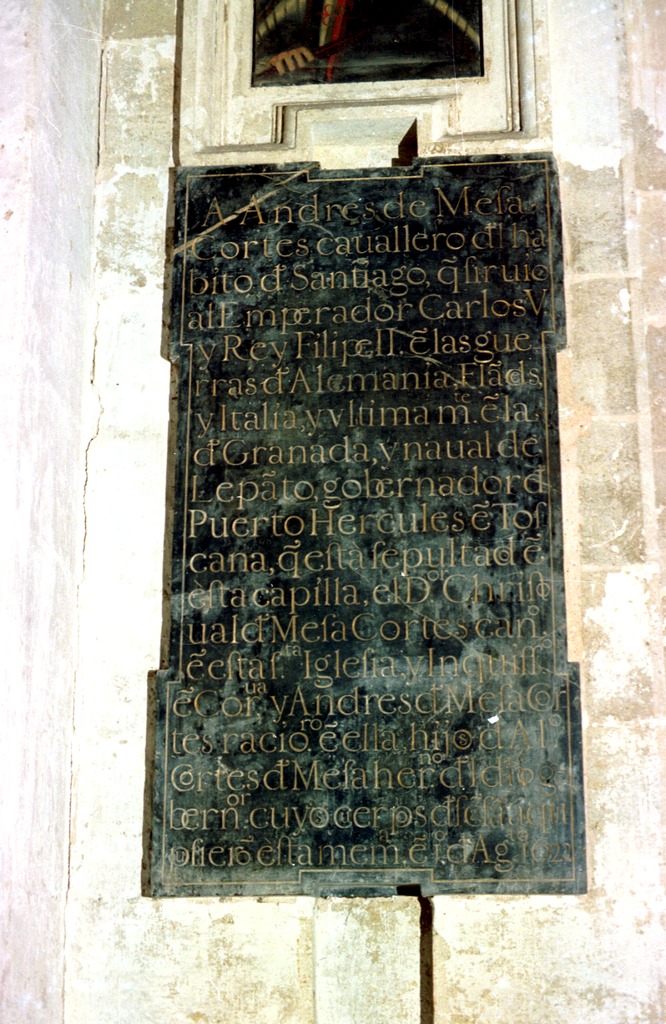 A Andres de Mesa
Cortes cauallero đl ha
bito đ Santiago, q̃ siruio
al Emperador Carlos V
y Rey Filipe II. ẽ las gue
rras đ Alemania, Flãds,
y Italia, y vltimamᵗᵉ. ẽ la
đ Granada, y naual de
Lepãto, gobernador đ
Puerto Hercules ẽ Tos
cana, q̃ esta sepultad ẽ
esta capilla, el Dᵒʳ Christo
ual đ Mesa Cortes canᵒ.
ẽ esta sᵗᵃ Iglesia, y Inquisʳ
ẽ Corᵘᵃ, y Andres đ Mesa Cor
tes racioʳᵒ, ẽ ella, hijo đ Alᵒ
Cortes đ Mesa herⁿᵒ đl dicho go
bernᵒʳ. cuyo cerps
pusierõ esta memᵃ. ẽ 1ᵒ. đ Agᵗᵒ